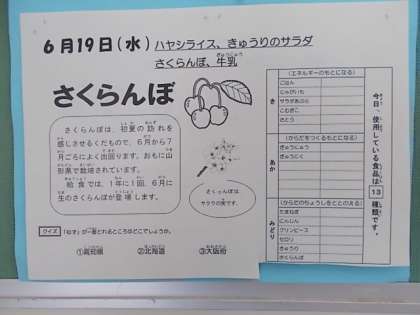 6月19日(水)
ハヤシライス、きゅうりのサラダ
さくらんぼ、牛乳
さくらんぼ
さくらんぼは、初夏の訪れを
感じさせるくだもので、6月から7
月ごろによく出回ります。おもに山
形県で栽培されています。
給食では、1年に1回、6月に
生のさくらんぼが登場します。
さくらんぼは
サクラの実です。
クイズ
①高知県 ②北海道 ③大阪府
今日、使用している食品は13種類です。
(エネルギーのもとになる)
き
ごはん
じゃがいも
サラダあぶら
こむぎこ
さとう
(からだをつくるもとになる)
あか
ぎゅうにく
(からだのちょうしをととのえる)
みどり
たまねぎ
にんじん
グリンピース
セロリ
きゅうり
さくらんぼ